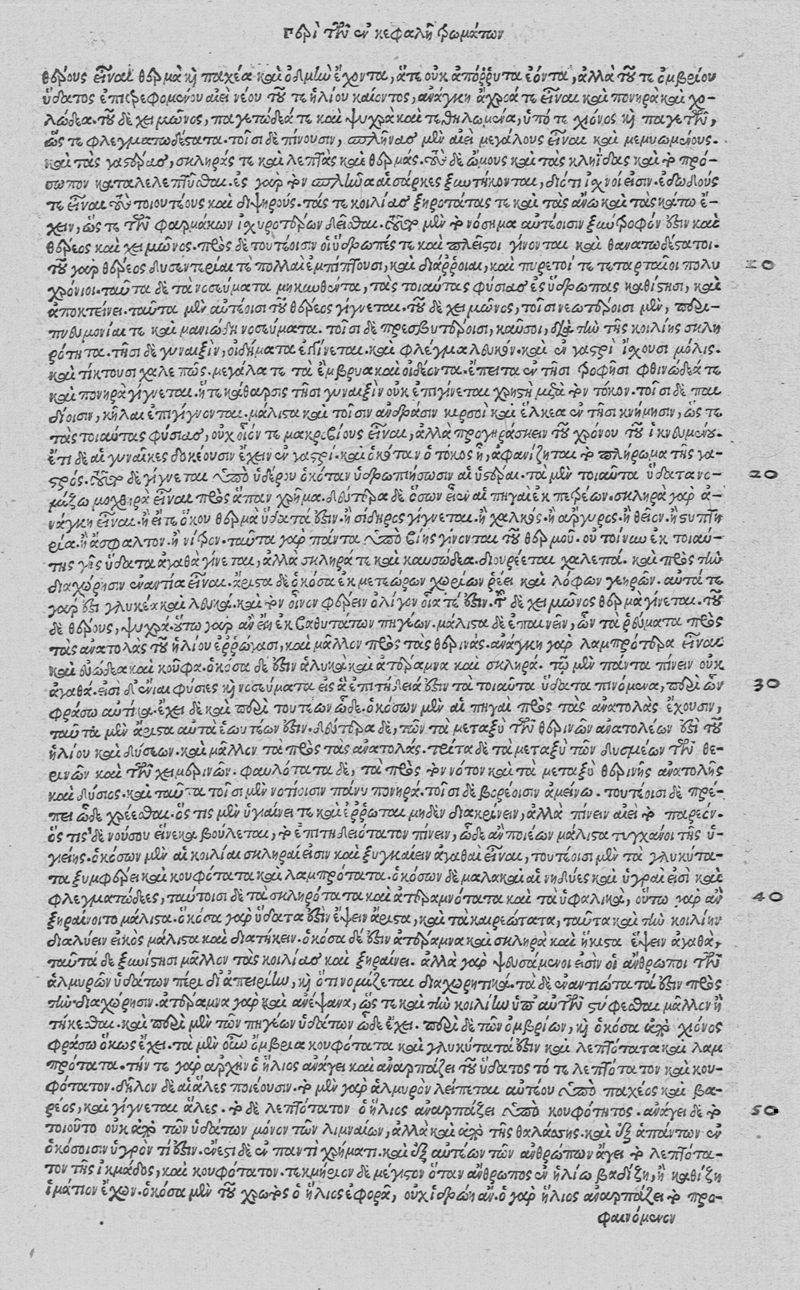 Περὶ τῶν ἐν κεφαλῇ τρωμάτων
θέρους εἶναι θερμὰ καὶ παχέα καὶ ὀδμὴν ἔχοντα, ἅτε οὐκ ἀπόρρυτα ἐόντα, ἀλλὰ τοῦ τε ὀμβρίου
ὕδατος ἐπιτρεφομένου αἰεὶ νέου τοῦ τε ἡλίου καίοντος, ἀνάγκη ἄχροά τε εἶναι καὶ πονηρὰ καὶ χο-
λώδεα. τοῦ δὲ χειμῶνος, παγετώδεά τε καὶ ψυχρὰ καὶ τεθολωμένα, ὑπό τε χιόνος καὶ παγετῶν,
ὥς τε φλεγματωδέστατα. τοῖσι δὲ πίνουσιν, σπλῆνας μὲν αἰεὶ μεγάλους εἶναι καὶ μεμυωμένους.
καὶ τὰς γαστέρας, σκληράς τε καὶ λεπτὰς καὶ θερμάς. τοὺς δὲ ὤμους καὶ τὰς κληῖδας καὶ τὸ πρό-
σωπον καταλελεπτῦσθαι. ἐς γὰρ τὸν σπλῆνα αἱ σάρκες ξυντήκονται, διότι ἰσχνοί εἰσιν. ἐδωδοὺς
τε εἶναι τοὺς τοιούτους καὶ διψηρούς. τάς τε κοιλίας ξηροτάτας τε καὶ τὰς ἄνω καὶ τὰς κάτω ἔ-
χειν, ὥς τε τῶν φαρμάκων ἰσχυροτέρων δεῖσθαι. τοῦτο μὲν τὸ νόσημα αὐτέοισιν ξύντροφόν ἐστιν καὶ
θέρεος καὶ χειμῶνος. πρὸς δὲ τουτέοισιν οἱ ὕδρωπές τε καὶ πλεῖστοι γίνονται καὶ θανατωδέστατοι.
τοῦ γὰρ θέρεος δυσεντερίαι τε πολλαὶ ἐμπίπτουσι, καὶ διάρροιαι, καὶ πυρετοί τε τεταρταῖοι πολυ 10
χρόνιοι. ταῦτα δὲ τὰ νοσεύματα μηκυνθέντα, τὰς τοιαύτας φύσιας ἐς ὕδρωπας καθίστησι, καὶ
ἀποκτείνει. ταῦτα μὲν αὐτέοισι τοῦ θέρεος γίγνεται. τοῦ δὲ χειμῶνος, τοῖσι νεωτέροισι μὲν, περι-
πνευμονίαι τε καὶ μανιώδη νοσεύματα. τοῖσι δὲ πρεσβυτέροισι, καῦσοι, διὰ τὴν τῆς κοιλίης σκλη
ρότητα. τῇσι δὲ γυναιξὶν, οἰδήματα ἐγγίνεται. καὶ φλέγμα λευκόν. καὶ ἐν γαστρὶ ἴσχουσι μόλις.
καὶ τίκτουσι χαλεπῶς. μεγάλα τε τὰ ἔμβρυα καὶ οἰδέοντα. ἔπειτα ἐν τῇσι τροφῇσι φθινώδεά τε
καὶ πονηρὰ γίγνεται. ἥ τε κάθαρσις τῇσι γυναιξὶν οὐκ ἐπιγίνεται χρηστὴ μετὰ τὸν τόκον. τοῖσι δὲ παι
δίοισιν, κῆλαι ἐπιγίγνονται. μάλιστα καὶ τοῖσιν ἀνδράσιν κιρσοὶ καὶ ἕλκεα ἐν τῇσι κνήμῃσιν, ὥς τε
τὰς τοιαύτας φύσιας, οὐχ οἷόν τε μακροβίους εἶναι, ἀλλὰ προγηράσκειν τοῦ χρόνου τοῦ ἱκνευμένου.
ἔτι δὲ αἱ γυναῖκες δοκέουσιν ἔχειν ἐν γαστρί. καὶ ὁκόταν ὁ τόκος ᾖ, ἀφανίζεται τὸ πλήρωμα τῆς γα-
στρός. τοῦτο δὲ γίγνεται ὑπὸ ὑδέρου ὁκόταν ὑδρωπιήσωσιν αἱ ὑστέραι. τὰ μὲν τοιαῦτα ὕδατα νο- 20
μίζω μοχθηρὰ εἶναι πρὸς ἅπαν χρῆμα. δεύτερα δὲ ὅσων εἶεν αἱ πηγαὶ ἐκ πετρέων. σκληρὰ γὰρ ἀ-
νάγκη εἶναι. ἢ εἴ τε ὅκου θερμὰ ὕδατά ἐστιν. ἢ σίδηρος γίγνεται. ἢ χαλκὸς. ἢ ἄργυρος. ἢ θεῖον. ἢ στυπτη
ρία. ἢ ἄσφαλτον. ἢ νίτρον. ταῦτα γὰρ πάντα ὑπὸ βίης γίνονται τοῦ θερμοῦ. οὐ τοίνυν ἐκ τοιαύ-
της γῆς ὕδατα ἀγαθὰ γίνεται, ἀλλὰ σκληρά τε καὶ καυσώδεα. διουρέεται χαλεπά. καὶ πρὸς τὴν
διαχώρησιν ἐναντία εἶναι. ἄριστα δὲ ὁκόσα ἐκ μετεώρων χωρίων ῥέει καὶ λόφων γεηρῶν. αὐτά τε
γάρ ἐστι γλυκέα καὶ λευκά. καὶ τὸν οἶνον φέρειν ὀλίγον οἷά τέ ἐστιν. τοῦ δὲ χειμῶνος θερμὰ γίνεται. τοῦ
δὲ θέρους, ψυχρά. οὕτω γὰρ ἂν εἴη ἐκ βαθυτάτων πηγέων. μάλιστα δὲ ἐπαινεῖν, ὧν τὰ ῥεύματα πρὸς
τὰς ἀνατολὰς τοῦ ἡλίου ἐρρώγασι, καὶ μᾶλλον πρὸς τὰς θερινάς. ἀνάγκη γὰρ λαμπρότερα εἶναι
καὶ εὐώδεα καὶ κοῦφα. ὁκόσα δέ ἐστιν ἁλυκὰ καὶ ἀτέραμνα καὶ σκληρά. τῷ μὲν πάντα πίνειν οὐκ
ἀγαθά. εἰσὶ δ' ἔνιαι φύσιες καὶ νοσεύματα εἰς ἃ ἐπιτήδειά ἐστιν τὰ τοιαῦτα ὕδατα πινόμενα, περὶ ὧν 30
φράσω αὐτίκα. ἔχει δὲ καὶ περὶ τουτέων ὧδε. ὁκόσων μὲν αἱ πηγαὶ πρὸς τὰς ἀνατολὰς ἔχουσιν,
ταῦτα μὲν ἄριστα αὐτὰ ἑωυτέων ἐστιν. δεύτερα δὲ, τῶν τὰ μεταξὺ τῶν θερινῶν ἀνατολέων ἐστὶ τοῦ
ἡλίου καὶ δύσεων. καὶ μᾶλλον τὰ πρὸς τὰς ἀνατολάς. τρίτα δὲ τὰ μεταξὺ τῶν δυσμέων τῶν θε-
ρινῶν καὶ τῶν χειμερινῶν. φαυλότατα δὲ, τὰ πρὸς τὸν νότον καὶ τὰ μεταξὺ θερινῆς ἀνατολῆς
καὶ δύσιος. καὶ ταῦτα τοῖσι μὲν νοτίοισιν πάνυ πονηρά. τοῖσι δὲ βορέοισιν ἀμείνω. τουτέοισι δὲ πρέ-
πει ὧδε χρέεσθαι. ὅς τις μὲν ὑγιαίνει τε καὶ ἔρρωται μηδὲν διακρίνειν, ἀλλὰ πίνειν αἰεὶ τὸ παρεόν.
ὅς τις δὲ νούσου εἵνεκα βούλεται, τὸ ἐπιτηδειότατον πίνειν, ὧδε ἂν ποιέων μάλιστα τυγχάνοι τῆς ὑ-
γιείης. ὁκόσων μὲν αἱ κοιλίαι σκληραί εἰσιν καὶ ξυγκαίειν ἀγαθαὶ εἶναι, τουτέοισι μὲν τὰ γλυκύτα-
τα ξυμφέρει καὶ κουφότατα καὶ λαμπρότατα. ὁκόσων δὲ μαλακαὶ αἱ νηδύες καὶ ὑγραί εἰσι καὶ
φλεγματώδεες, ταύτοισι δὲ τὰ σκληρότατα καὶ ἀτεραμνότατα καὶ τὰ ὑφαλικὰ, οὕτω γὰρ ἂν 40
ξηραίνοιτο μάλιστα. ὁκόσα γὰρ ὕδατα ἐστιν ἕψειν ἄριστα, καὶ τὰ καιρεώτατα, ταῦτα καὶ τὴν κοιλίην
διαλύειν εἰκὸς μάλιστα καὶ διατήκειν. ὁκόσα δέ ἐστιν ἀτέραμνα καὶ σκληρὰ καὶ ἥκιστα ἕψειν ἀγαθὰ,
ταῦτα δὲ ξυνίστησι μᾶλλον τὰς κοιλίας καὶ ξηραίνει. ἀλλὰ γὰρ ψευσάμενοι εἰσὶν οἱ ἄνθρωποι τῶν
ἁλμυρῶν ὑδάτων πέρι δι' ἀπειρίην, καὶ ὅτι νομίζεται διαχωρητικά. τὰ δὲ ἐναντιώτατά ἐστιν πρὸς
τὴν διαχώρησιν. ἀτέραμνα γὰρ καὶ ἀνέψανα, ὥς τε καὶ τὴν κοιλίην ὑπ' αὐτῶν στύφεσθαι μᾶλλον ἢ
τήκεσθαι. καὶ περὶ μὲν τῶν πηγέων ὑδάτων ὧδε ἔχει. περὶ δὲ τῶν ὀμβρίων, καὶ ὁκόσα ἀπὸ χιόνος
φράσω ὅκως ἔχει. τὰ μὲν οὖν ὄμβρια κουφότατα καὶ γλυκύτατά ἐστιν καὶ λεπτότατα καὶ λαμ
πρότατα. τήν τε γὰρ ἀρχὴν ὁ ἥλιος ἀνάγει καὶ ἀναρπάζει τοῦ ὕδατος τό τε λεπτότατον καὶ κου-
φότατον. δῆλον δὲ αἱ ἅλες ποιέουσιν. τὸ μὲν γὰρ ἁλμυρὸν λείπεται αὐτέου ὑπὸ παχέος καὶ βα-
ρέος, καὶ γίγνεται ἅλες. τὸ δὲ λεπτότατον ὁ ἥλιος ἀναρπάζει ὑπὸ κουφότητος. ἀνάγει δὲ τὸ 50
τοιοῦτο οὐκ ἀπὸ τῶν ὑδάτων μόνον τῶν λιμναίων, ἀλλὰ καὶ ἀπὸ τῆς θαλάσσης. καὶ ἐξ ἁπάντων ἐν
ὁκόσοισιν ὑγρόν τι ἐστιν. ἔνεστι δὲ ἐν παντὶ χρήματι. καὶ ἐξ αὐτέων τῶν ἀνθρώπων ἄγει τὸ λεπτότα-
τον τῆς ἰκμάδος, καὶ κουφότατον. τεκμήριον δὲ μέγιστον ὅταν ἄνθρωπος ἐν ἡλίῳ βαδίζῃ, ἢ καθίζῃ
ἱμάτιον ἔχων. ὁκόσα μὲν τοῦ χρωτὸς ὁ ἥλιος ἐφορᾷ, οὐχ ἱδρῴη ἄν. ὁ γὰρ ἥλιος ἀναρπάζει τὸ προ-
φαινόμενον